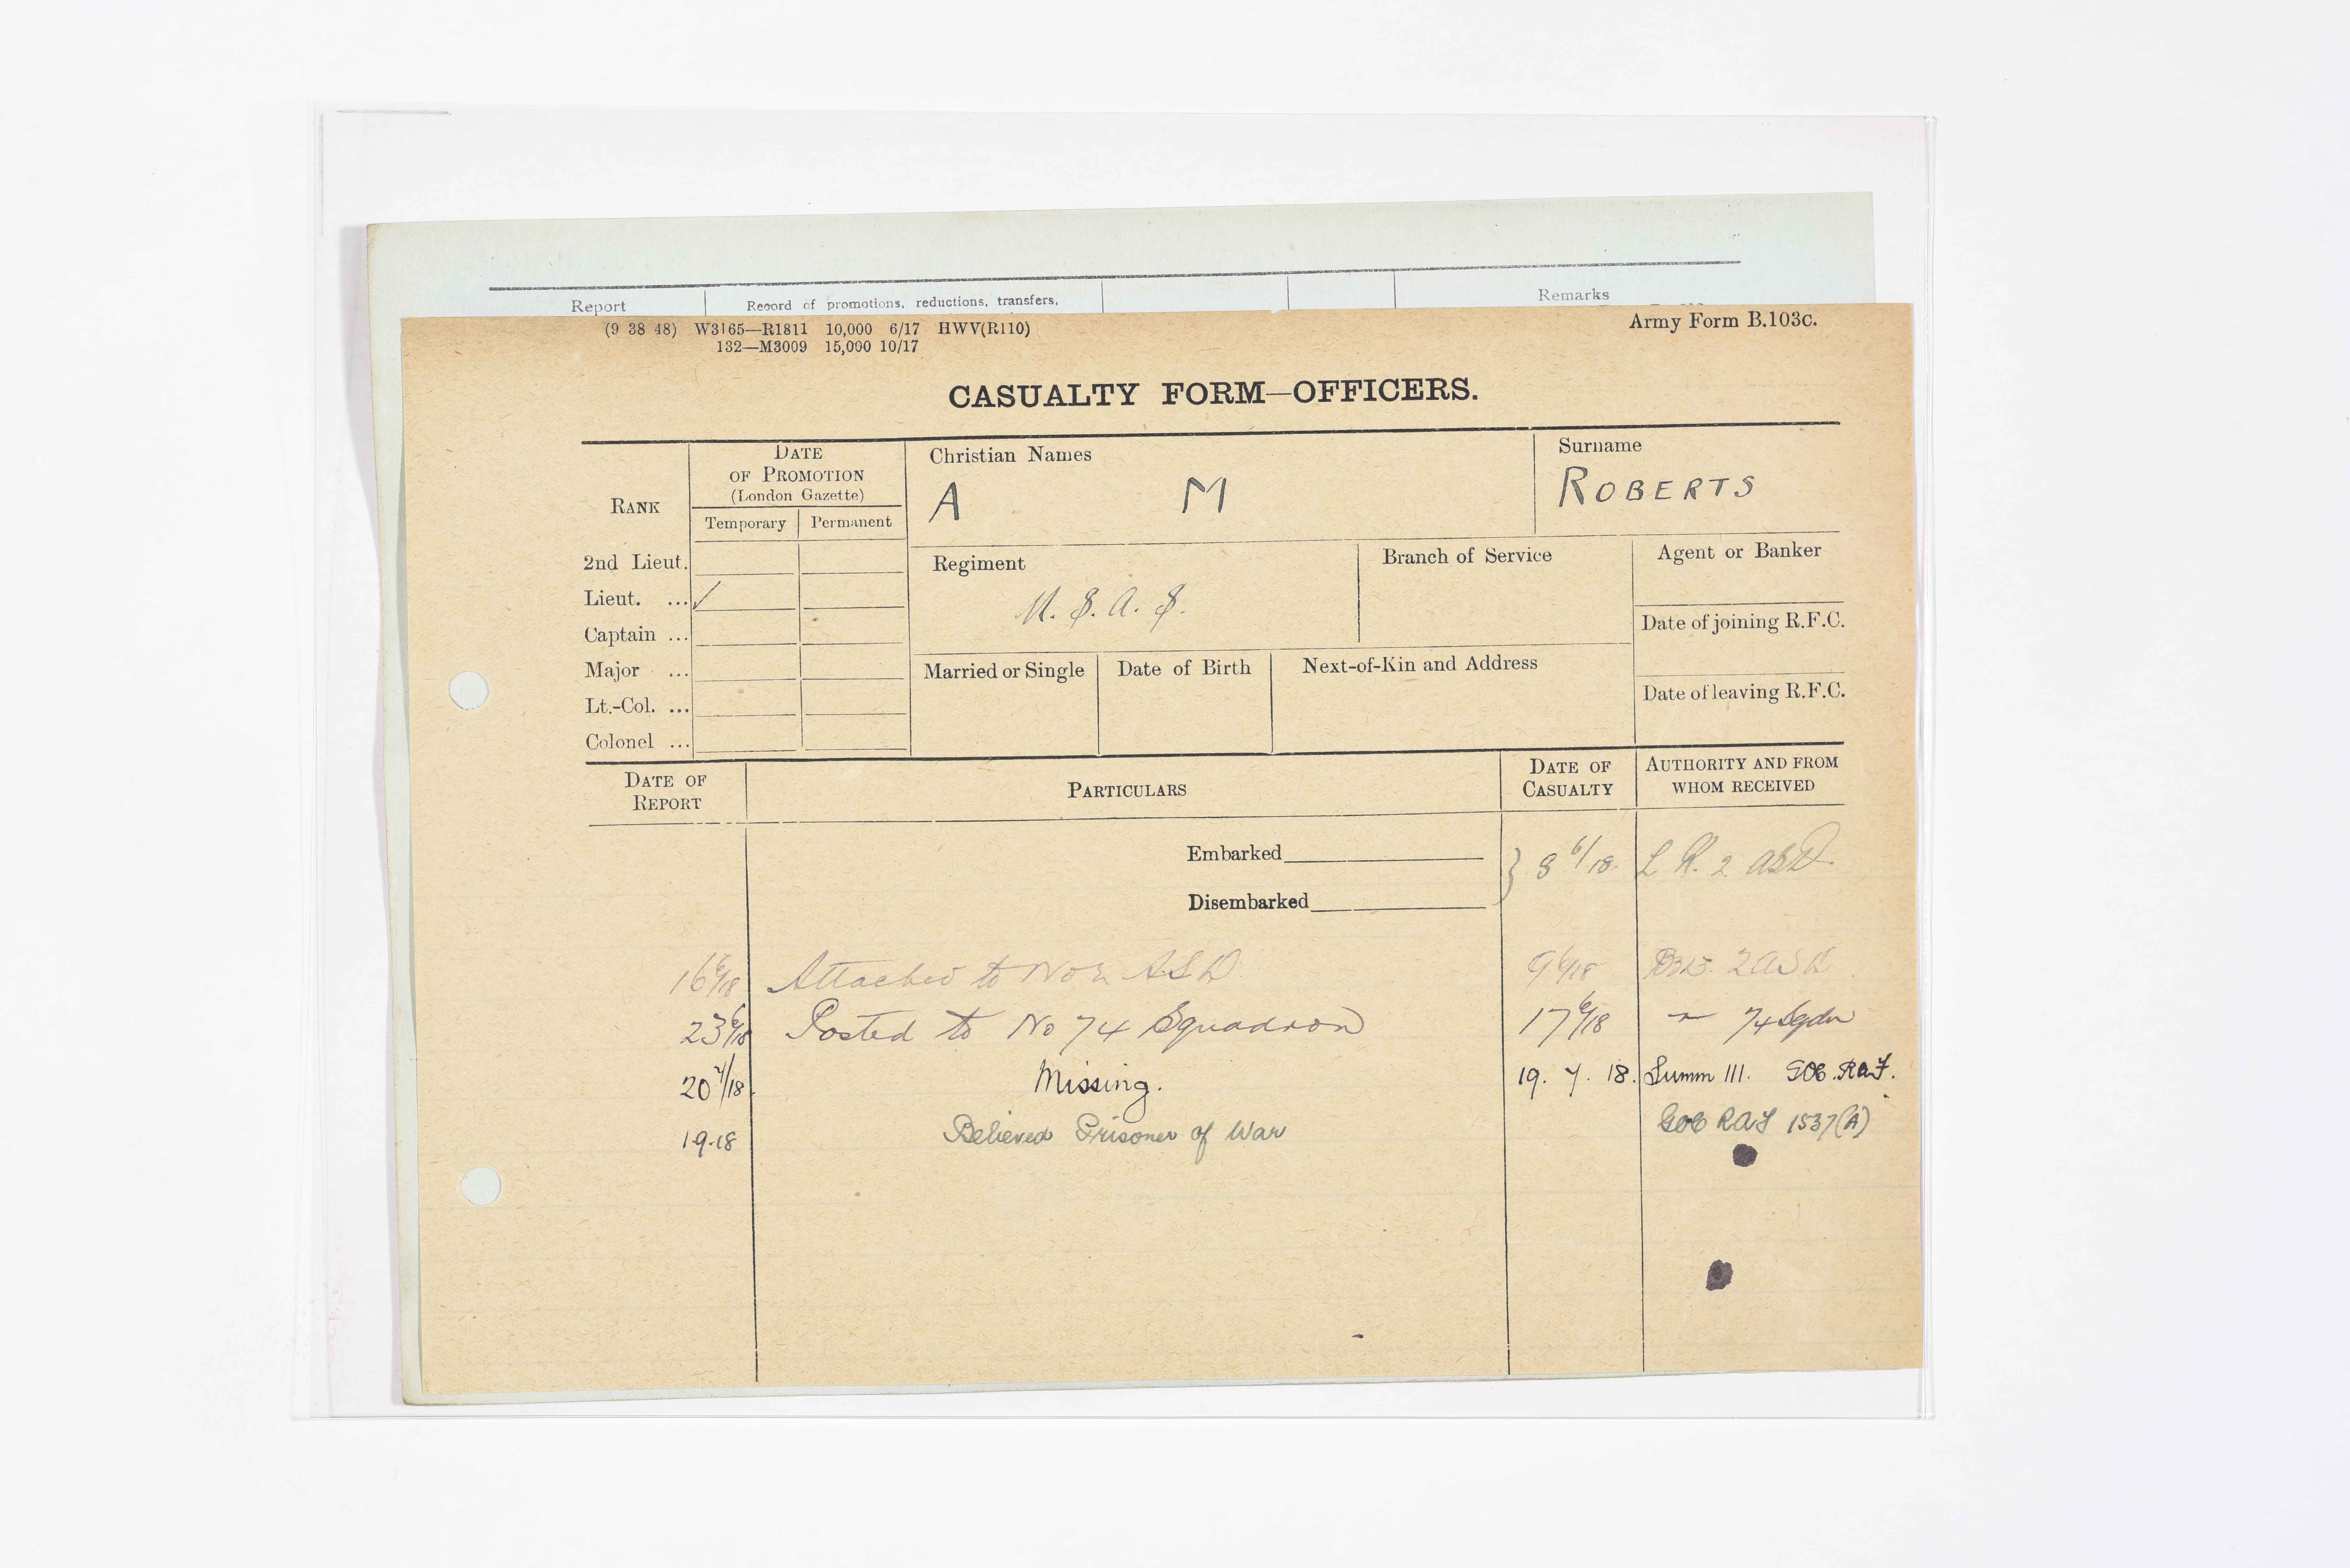 Report Record of promotions, reductions, transfers, Remarks
(9 38 48) W3165—R1811 10,000 6/17 HWV(R110) Army Form B.103c.
132—M3009 15,000 10/17
CASUALTY FORM—OFFICERS.
RANK
DATE
OF PROMOTION
(London Gazette)
Temporary Permanent
Christian Names
A M
Surname
ROBERTS
2nd Lieut.
Lieut. ... ✓
Captain ...
Major ...
Lt.-Col. ...
Colonel ...
Regiment
U. S. A. S.
Branch of Service
Agent or Banker
Date of joining R.F.C.
Date of leaving R.F.C.
Married or Single
Date of Birth
Next-of-Kin and Address
DATE OF
REPORT
PARTICULARS
DATE OF
CASUALTY
AUTHORITY AND FROM
WHOM RECEIVED
Embarked
Disembarked
} 8 6/18. L R. 2 ASD.
16 6/18 Attached to No 2 ASD 9 6/18 B213 2 ASD
23 6/18 Posted to No 74 Squadron 17 6/18 " 74 Sqdn
20 7/18 Missing. 19. 7. 18. Summ 111. GOC. RAF.
1·9·18 Believed Prisoner of War GOC RAF 1537(A)